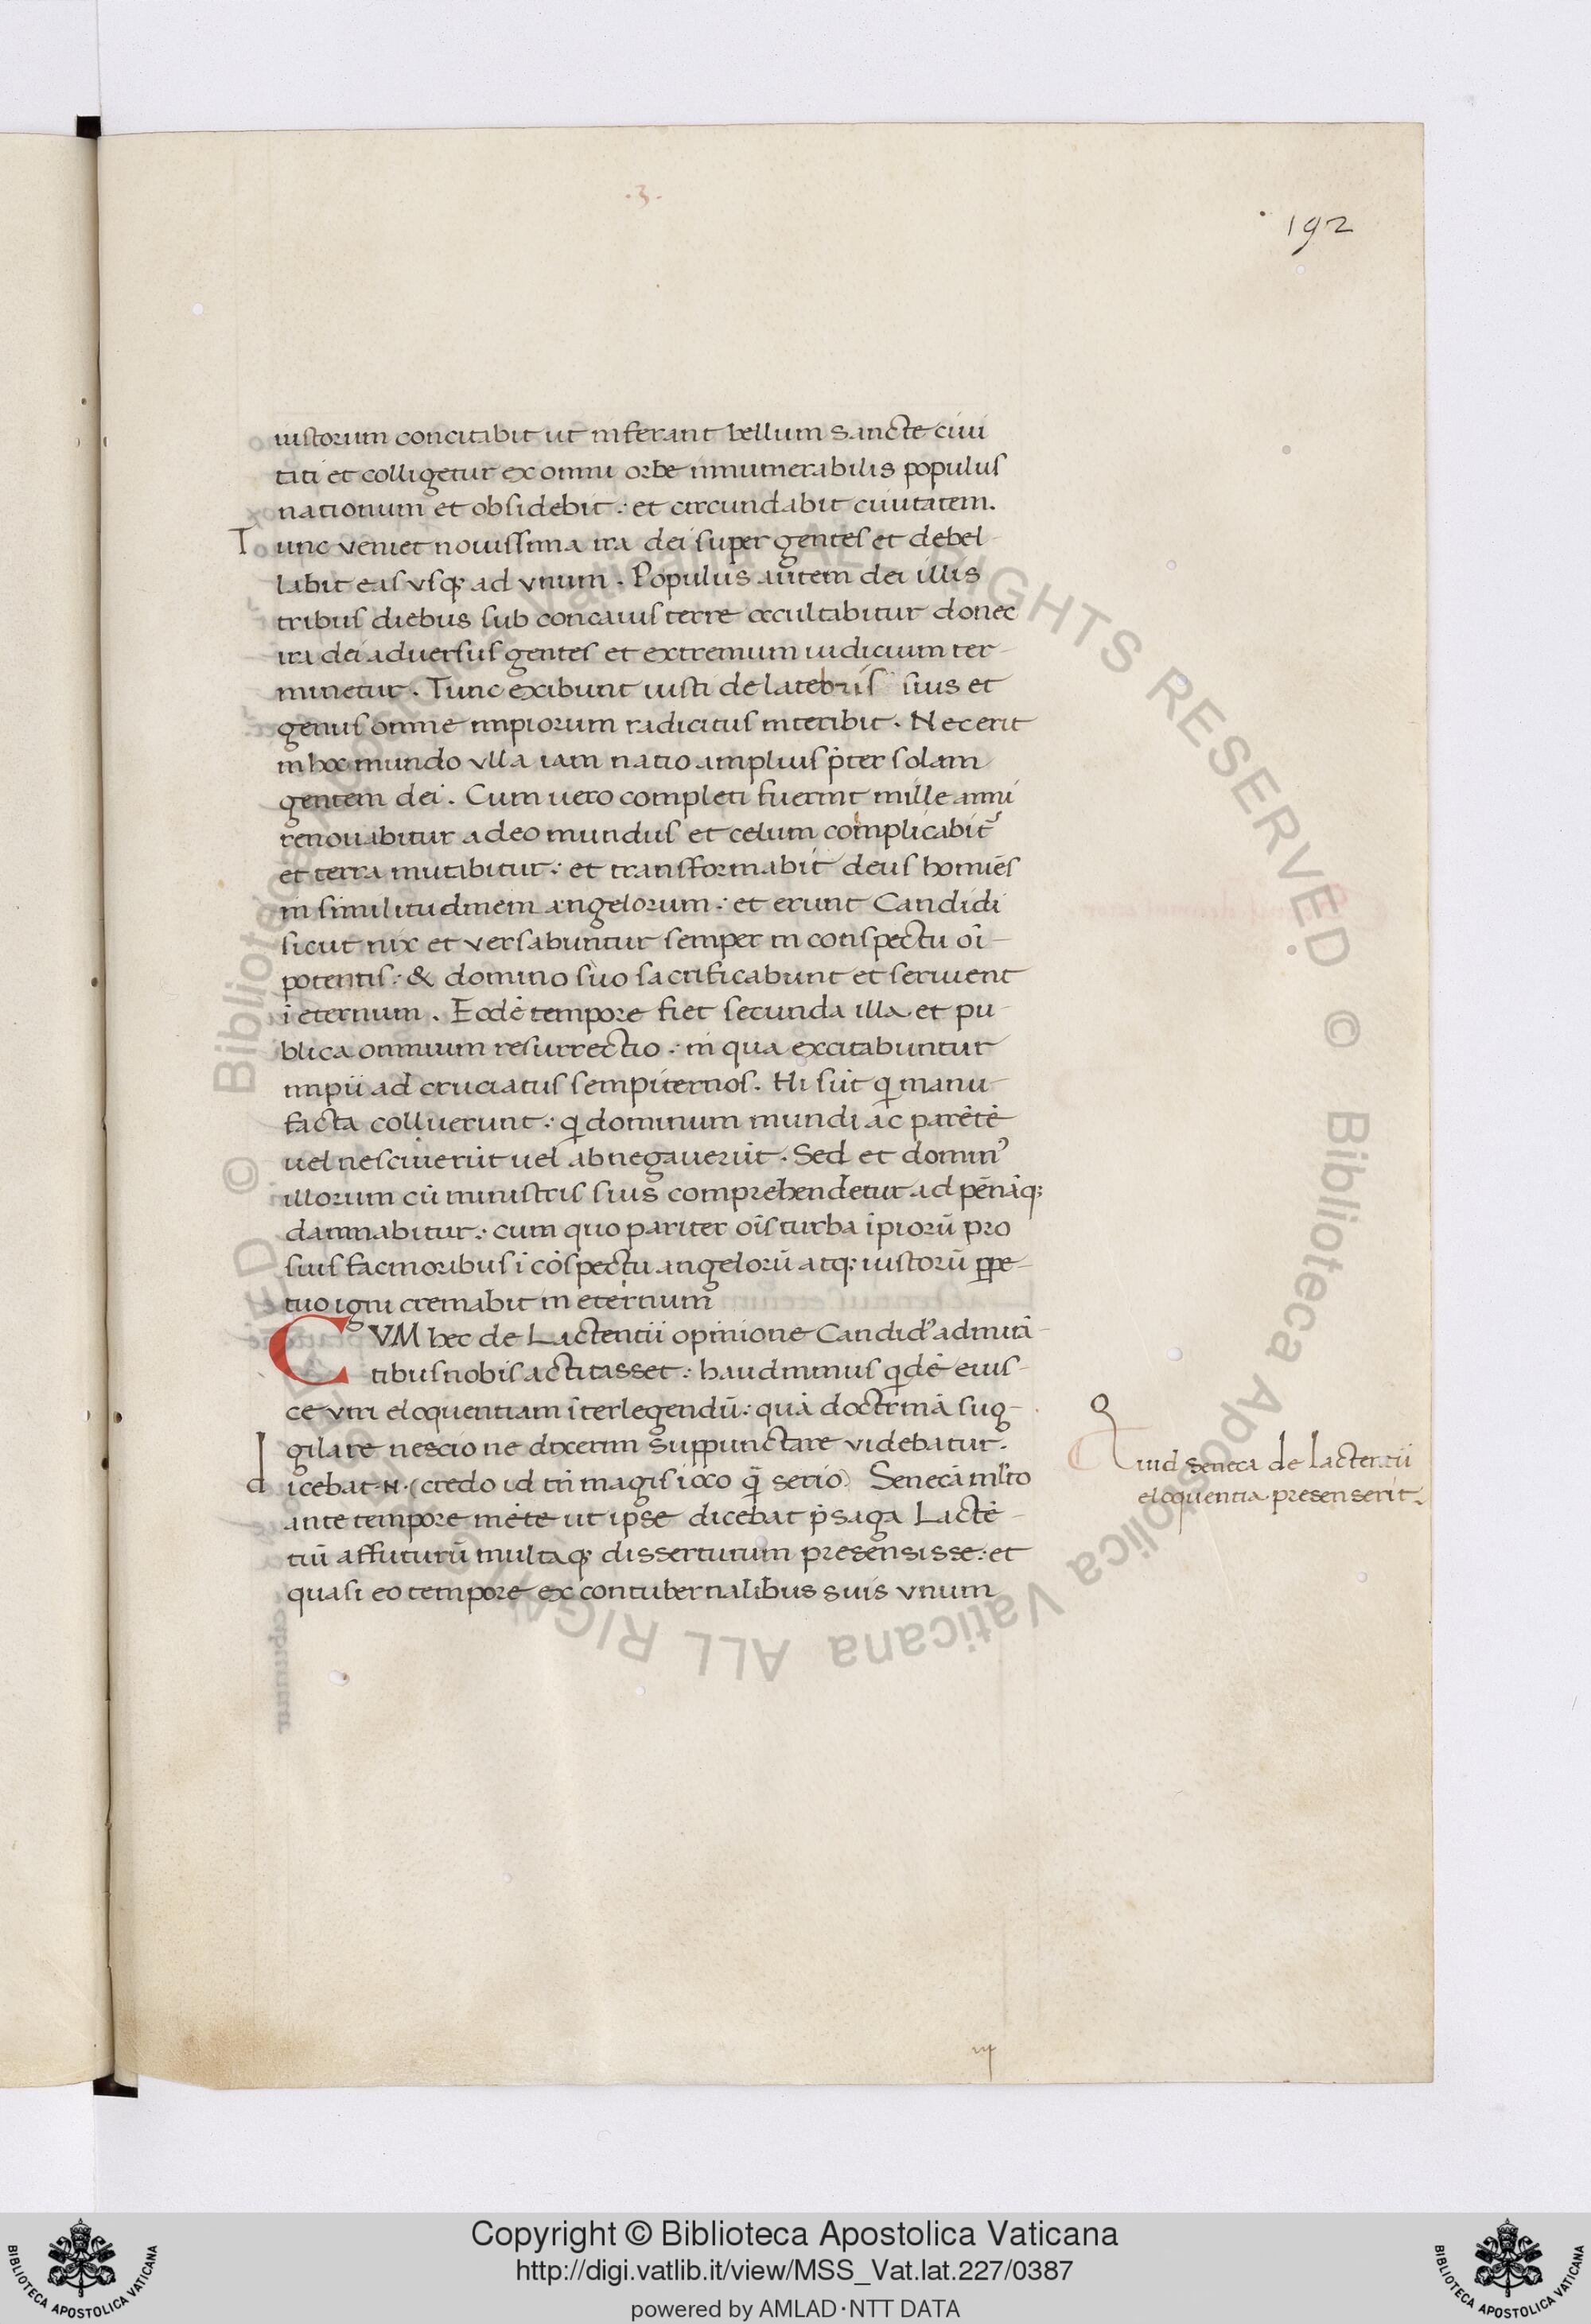 .3.
192
iustorum concitabit ut inferant bellum sancte ciui
tati et colligetur ex omni orbe innumerabilis populus
nationum et obsidebit : et circundabit ciuitatem.
Tunc veniet nouissima ira dei super gentes et debel-
labit eas vsq; ad vnum . Populus autem dei illis
tribus diebus sub concauis terre occultabitur donec
ira dei aduersus gentes et extremum iudicium ter-
minetur . Tunc exibunt iusti de latebris suis et
genus omne impiorum radicitus interibit . Nec erit
in hoc mundo vlla iam natio amplius p̄ter solam
gentem dei . Cum uero completi fuerint mille anni
renouabitur a deo mundus et celum complicabit᷑
et terra mutabitur : et transformabit deus homiēs
in similitudinem angelorum : et erunt Candidi
sicut nix et versabuntur semper in conspectu oī-
potentis : & domino suo sacrificabunt et seruient
ī eternum . Eodē tempore fiet secunda illa et pu-
blica omnium resurrectio : in qua excitabuntur
impii ad cruciatus sempiternos . Hi sūt q̄ manu
facta colluerunt : q̄ dominum mundi ac parētē
uel nesciuerūt uel abnegauerūt . Sed et dominꝰ
illorum cū ministris suis comprehendetur ad pēnāq;
damnabitur : cum quo pariter oīs turba īpiorū pro
suis facinoribus ī cōspectu angelorū atq; iustorū ꝑpe-
tuo igni cremabit in eternum
CVM hec de Lactentii opinione Candidꝰ admirā-
tibus nobis actitasset : haud minus q̄dē eius-
ce viri eloquentiam īterlegendū : quā doctrinā sug-
gilare nescio ne dixerim suppunctare videbatur.
dicebat .N. (credo id tn̄ magis ioco q̄ serio) Senecā ml̄to
ante tempore mēte ut ipse dicebat p̄saga Lactē-
tiū affuturū multaq; disserturum presensisse : et
quasi eo tempore ex contubernalibus suis vnum
Quid Seneca de Lactentii
eloquentia presenserit.
Copyright © Biblioteca Apostolica Vaticana
http://digi.vatlib.it/view/MSS_Vat.lat.227/0387
powered by AMLAD·NTT DATA
BIBLIOTECA APOSTOLICA VATICANA
BIBLIOTECA APOSTOLICA VATICANA
© Biblioteca Apostolica Vaticana ALL RIGHTS RESERVED © Biblioteca Apostolica Vaticana ALL RIGHTS RESERVED